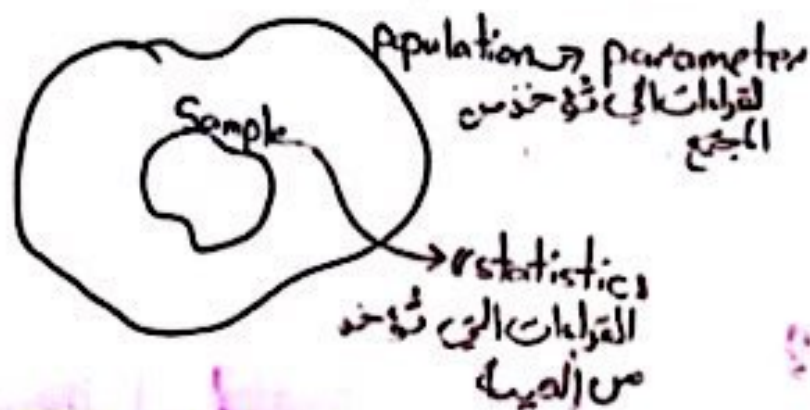 population → parameter
لقراءات الي تؤخذ من
المجتمع
Sample
statistics
القراءات التي تؤخذ
من العينة